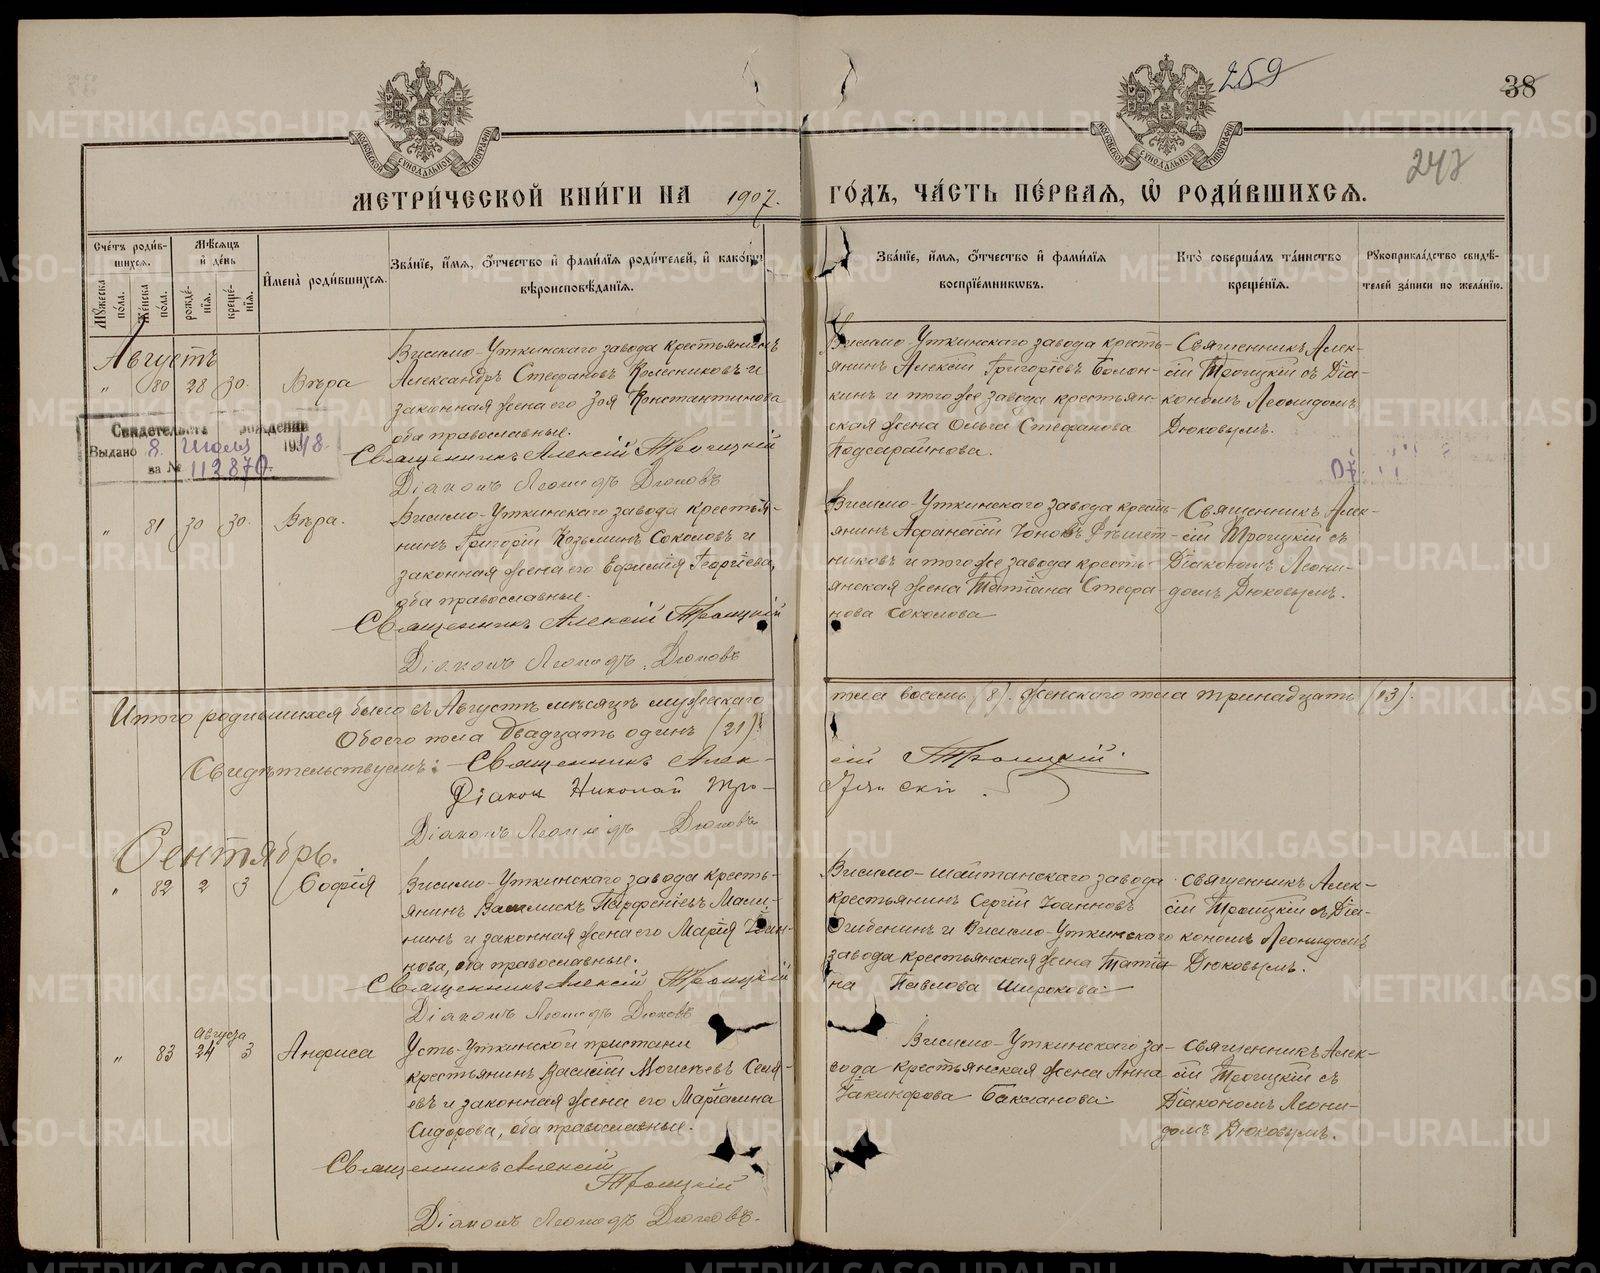 259
38
247
МОСКОВСКОЙ СѴНОДАЛЬНОЙ ТИПОГРАФІИ
МОСКОВСКОЙ СѴНОДАЛЬНОЙ ТИПОГРАФІИ
МЕТРИ́ЧЕСКОЙ КНИ́ГИ НА 1907. ГО́ДЪ, ЧА́СТЬ ПЕ́РВАЯ, Ѽ РОДИ́ВШИХСЯ.
Сче́тъ роди́вшихся.
Мꙋ́жеска по́ла.
Же́нска по́ла.
Мѣ́сяцъ и҆ де́нь
рожде́нїя.
креще́нїя.
И҆мена̀ роди́вшихся.
Зва́нїе, и҆́мя, ѻ҆́тчество и҆ фами́лїя роди́телей, и҆ како́гѡ
вѣроисповѣ́данїя.
Зва́нїе, и҆́мя, ѻ҆́тчество и҆ фами́лїя
воспрїе́мникѡвъ.
Кто̀ соверша́лъ та́инство
креще́нїя.
Рꙋкоприкла́дство свидѣ́телей за́писи по жела́нїю.
Августъ
" 80 28 30. Вѣра
Висимо-Уткинскаго завода крестьянинъ
Александръ Стефановъ Колесниковъ и
законная жена его Зоя Константинова
оба православные.
Священникъ Алексій Троицкій
Діаконъ Леонидъ Дюковъ
Висимо-Уткинскаго завода кресть-
янинъ Алексій Григоріевъ Болон-
кинъ и того же завода крестьян-
ская жена Ольга Стефанова
Подсараинова.
Священникъ Алек-
сій Троицкій съ Діа-
кономъ Леонидомъ
Дюковымъ.
Свидетельств рождении
Выдано 8. Июля 1948.
за № 112870.
" 81 30 30. Вѣра.
Висимо-Уткинскаго завода крестья-
нинъ Григорій Козьминъ Соколовъ и
законная жена его Ефимія Георгіева,
оба православные.
Священникъ Алексій Троицкій
Діаконъ Леонидъ Дюковъ
Висимо-Уткинскаго завода кресть-
янинъ Афанасій Іоновъ Рѣшет-
никовъ и того же завода кресть-
янская жена Татіана Стефа-
нова Соколова
Священникъ Алек-
сій Троицкій съ
Діакономъ Леони-
домъ Дюковымъ.
Итого родившихся было въ Августѣ мѣсяцѣ мужескаго пола восемь (8). женскаго пола тринадцать (13).
Обоего пола двадцать одинъ (21).
Свидѣтельствуемъ: Священникъ Алексій Троицкій.
Діакон Николай
Діаконъ Леонидъ Дюковъ
Сентябрь.
" 82 2 3 Софія
Висимо-Уткинскаго завода кресть-
янинъ Василискъ Парфеніевъ Мали-
нинъ и законная жена его Марія Іоан-
нова, оба православные.
Священникъ Алексій Троицкій
Діаконъ Леонидъ Дюковъ
Висимо-шайтанскаго завода
крестьянинъ Сергій Іоанновъ
Огибенинъ и Висимо-Уткинскаго
завода крестьянская жена Татіа-
на Павлова Широкова
Священникъ Алек-
сій Троицкій съ Діа-
кономъ Леонидомъ
Дюковымъ.
" 83 Августа 24 3 Анфиса
Усть-Уткинской пристани
крестьянинъ Василій Моисеевъ
и законная жена его Маріамна
Сидорова, оба православные.
Священникъ Алексій
Троицкій
Діаконъ Леонидъ Дюковъ.
Висимо-Уткинскаго за-
вода крестьянская жена Анна
Іакинфова Бакланова
Священникъ Алек-
сій Троицкій съ
Діакономъ Леони-
домъ Дюковымъ.
METRIKI.GASO-URAL.RU